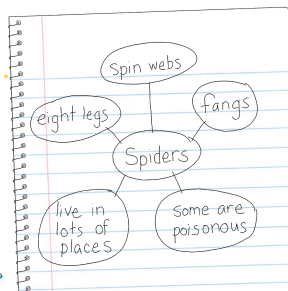 Spin webs
eight legs
fangs
Spiders
live in
lots of
places
some are
poisonous